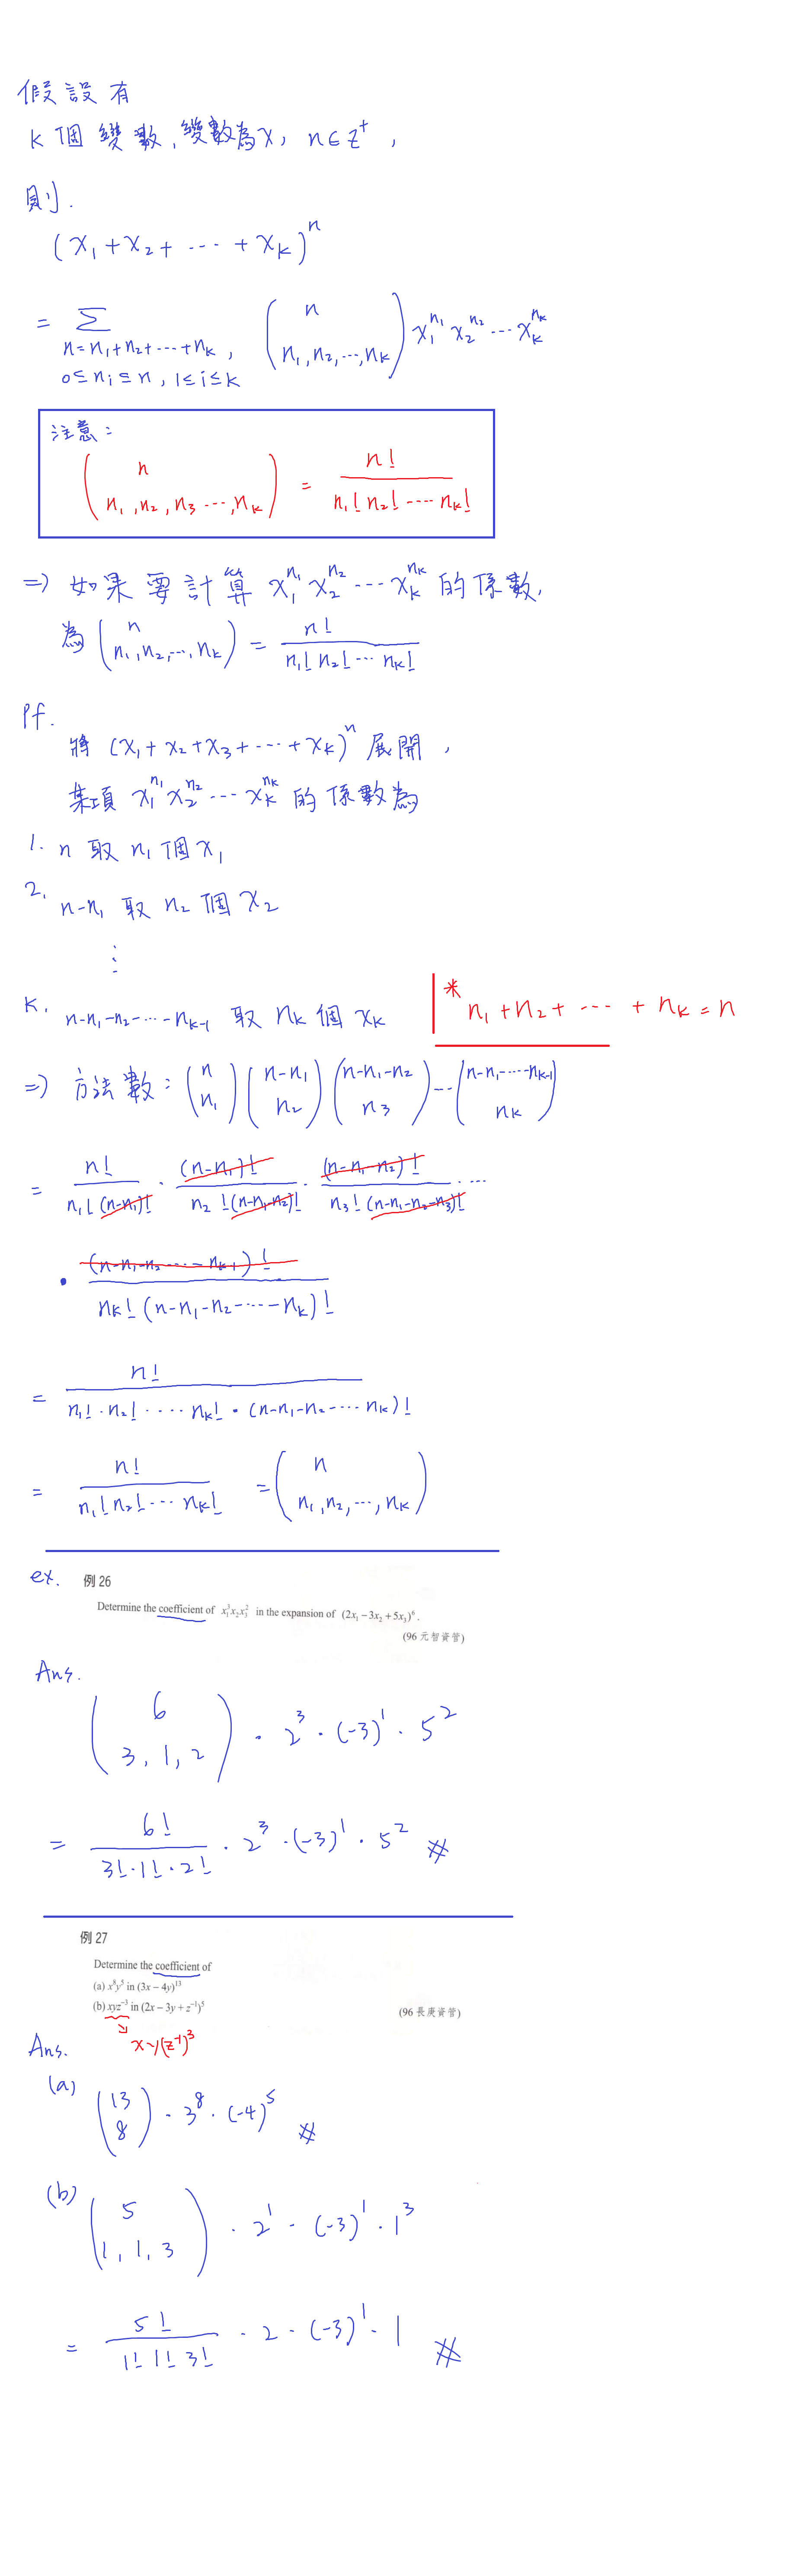 假設有
k 個變數, 變數為 x, n ∈ Z⁺,
則.
(x₁ + x₂ + ⋯ + x_k)ⁿ
= Σ_{n = n₁+n₂+⋯+n_k, 0 ≤ n_i ≤ n, 1 ≤ i ≤ k} (n; n₁, n₂, ⋯, n_k) x₁^{n₁} x₂^{n₂} ⋯ x_k^{n_k}
注意:
(n; n₁, n₂, n₃ ⋯, n_k) = n! / (n₁! n₂! ⋯ n_k!)
⇒ 如果要計算 x₁^{n₁} x₂^{n₂} ⋯ x_k^{n_k} 的係數,
為 (n; n₁, n₂, ⋯, n_k) = n! / (n₁! n₂! ⋯ n_k!)
pf.
將 (x₁ + x₂ + x₃ + ⋯ + x_k)ⁿ 展開,
某項 x₁^{n₁} x₂^{n₂} ⋯ x_k^{n_k} 的係數為
1. n 取 n₁ 個 x₁
2. n-n₁ 取 n₂ 個 x₂
⋮
k. n-n₁-n₂-⋯-n_{k-1} 取 n_k 個 x_k
* n₁ + n₂ + ⋯ + n_k = n
⇒ 方法數: (n; n₁) (n-n₁; n₂) (n-n₁-n₂; n₃) ⋯ (n-n₁-⋯-n_{k-1}; n_k)
= n! / (n₁! (n-n₁)!) · (n-n₁)! / (n₂! (n-n₁-n₂)!) · (n-n₁-n₂)! / (n₃! (n-n₁-n₂-n₃)!) · ⋯
· (n-n₁-n₂-⋯-n_{k-1})! / (n_k! (n-n₁-n₂-⋯-n_k)!)
= n! / (n₁! · n₂! · ⋯ n_k! · (n-n₁-n₂-⋯ n_k)!)
= n! / (n₁! n₂! ⋯ n_k!) = (n; n₁, n₂, ⋯, n_k)
ex. 例 26
Determine the coefficient of x₁³x₂x₃² in the expansion of (2x₁ − 3x₂ + 5x₃)⁶.
(96 元智資管)
Ans.
(6; 3, 1, 2) · 2³ · (-3)¹ · 5²
= 6! / (3! · 1! · 2!) · 2³ · (-3)¹ · 5² #
例 27
Determine the coefficient of
(a) x⁸y⁵ in (3x − 4y)¹³
(b) xyz⁻³ in (2x − 3y + z⁻¹)⁵ (96 長庚資管)
↘ xy(z⁻¹)³
Ans.
(a)
(13; 8) · 3⁸ · (-4)⁵ #
(b)
(5; 1, 1, 3) · 2¹ · (-3)¹ · 1³
= 5! / (1! 1! 3!) · 2 · (-3)¹ · 1 #